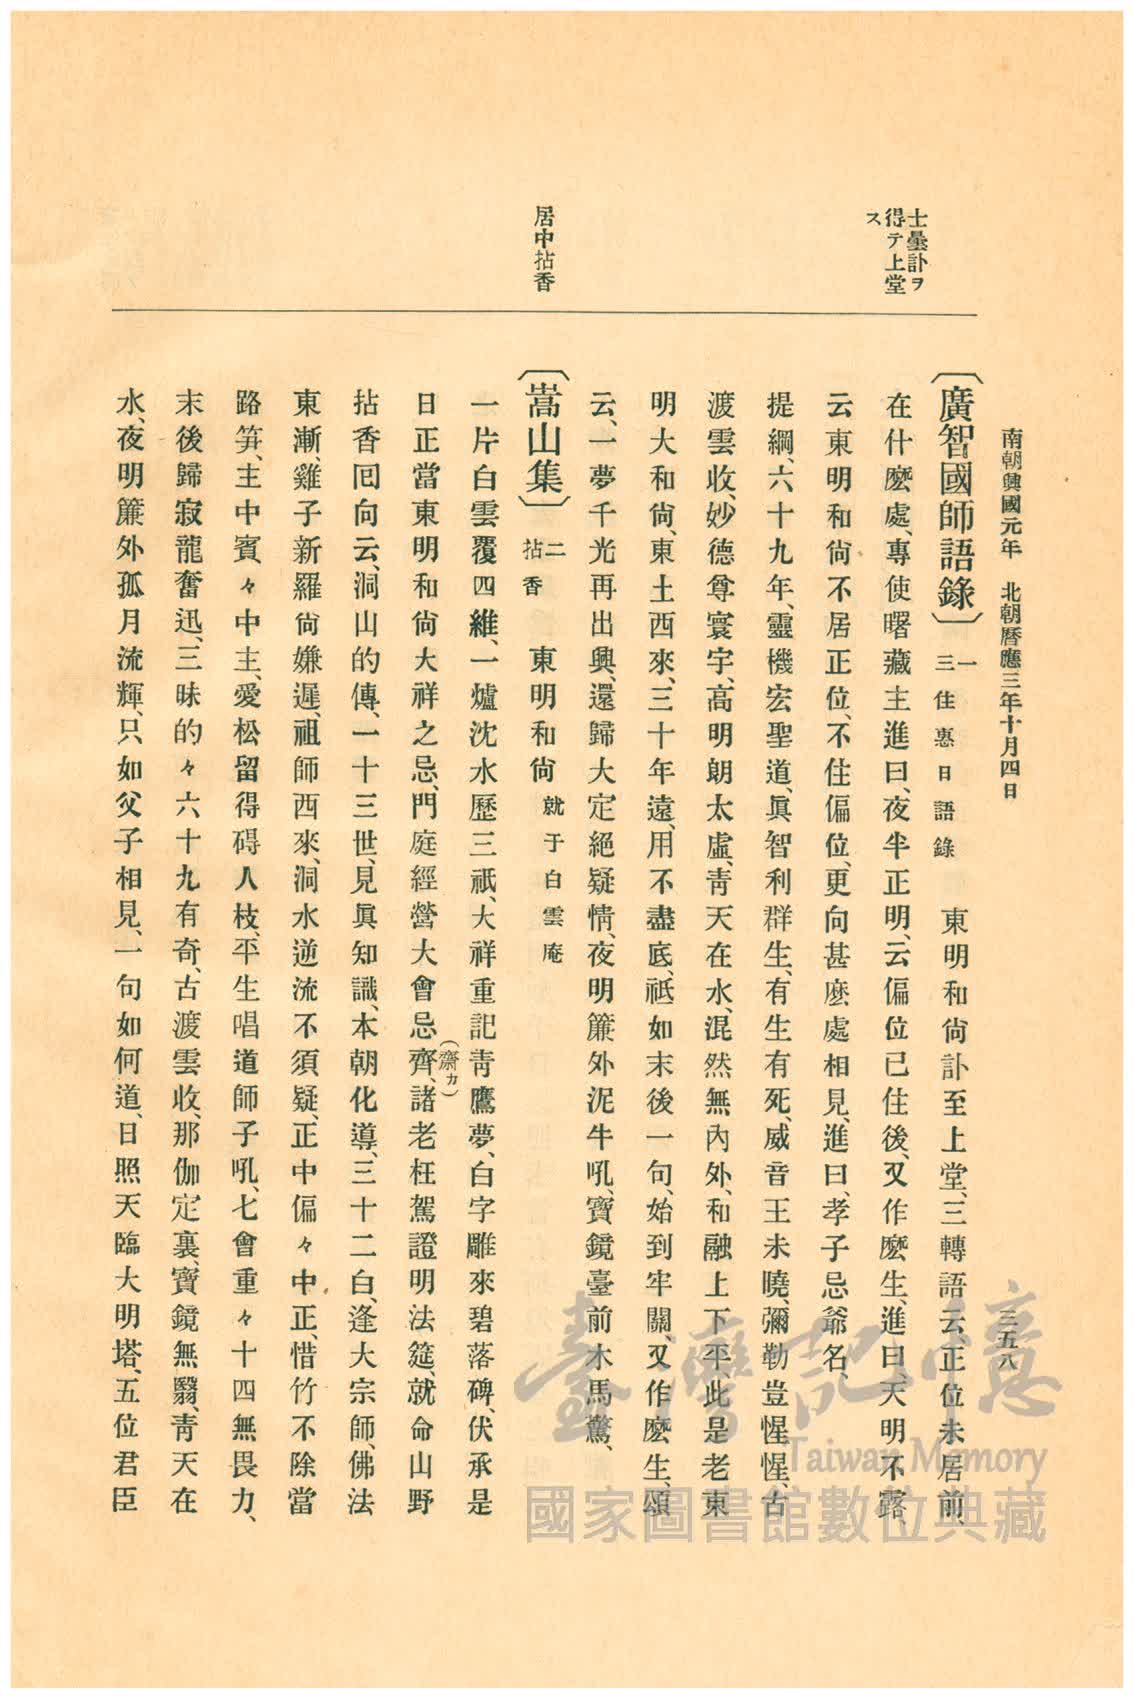 南朝興國元年 北朝曆應三年十月四日
三五八
士曇訃ヲ
得テ上堂
ス
〔廣智國師語錄〕 一三 住惠日語錄 東明和尙訃至上堂、三轉語云、正位未居前、
在什麼處、專使曙藏主進曰、夜半正明、云偏位已住後、又作麼生、進曰、天明不露、
云東明和尙不居正位、不住偏位、更向甚麼處相見、進曰、孝子忌爺名、
提綱、六十九年、靈機宏聖道、眞智利群生、有生有死、威音王未曉、彌勒豈惺惺、古
渡雲收、妙德尊寰宇、高明朗太虛、靑天在水、混然無內外、和融上下平此是老東
明大和尙、東土西來、三十年遠、用不盡底、祗如末後一句、始到牢關、又作麼生、頌
云、一夢千光再出興、還歸大定絕疑情、夜明簾外泥牛吼、寶鏡臺前木馬驚、
居中拈香
〔嵩山集〕 二拈香 東明和尙 就于白雲庵
一片白雲覆四維、一爐沈水歷三祇、大祥重記靑鷹夢、白字雕來碧落碑、伏承是
日正當東明和尙大祥之忌、門庭經營大會忌齊、諸老枉駕證明法筵、就命山野
(齋カ)
拈香囘向云、洞山的傳、一十三世、見眞知識、本朝化導、三十二白、逢大宗師、佛法
東漸、雞子新羅尙嫌遲、祖師西來、洞水逆流不須疑、正中偏々中正、惜竹不除當
路笋、主中賓、々中主、愛松留得碍人枝、平生唱道師子吼、七會重々十四無畏力、
末後歸寂龍奮迅、三昧的々六十九有奇、古渡雲收、那伽定裏、寶鏡無翳、靑天在
水、夜明簾外孤月流輝、只如父子相見、一句如何道、日照天臨大明塔、五位君臣
臺灣記憶
Taiwan Memory
國家圖書館數位典藏